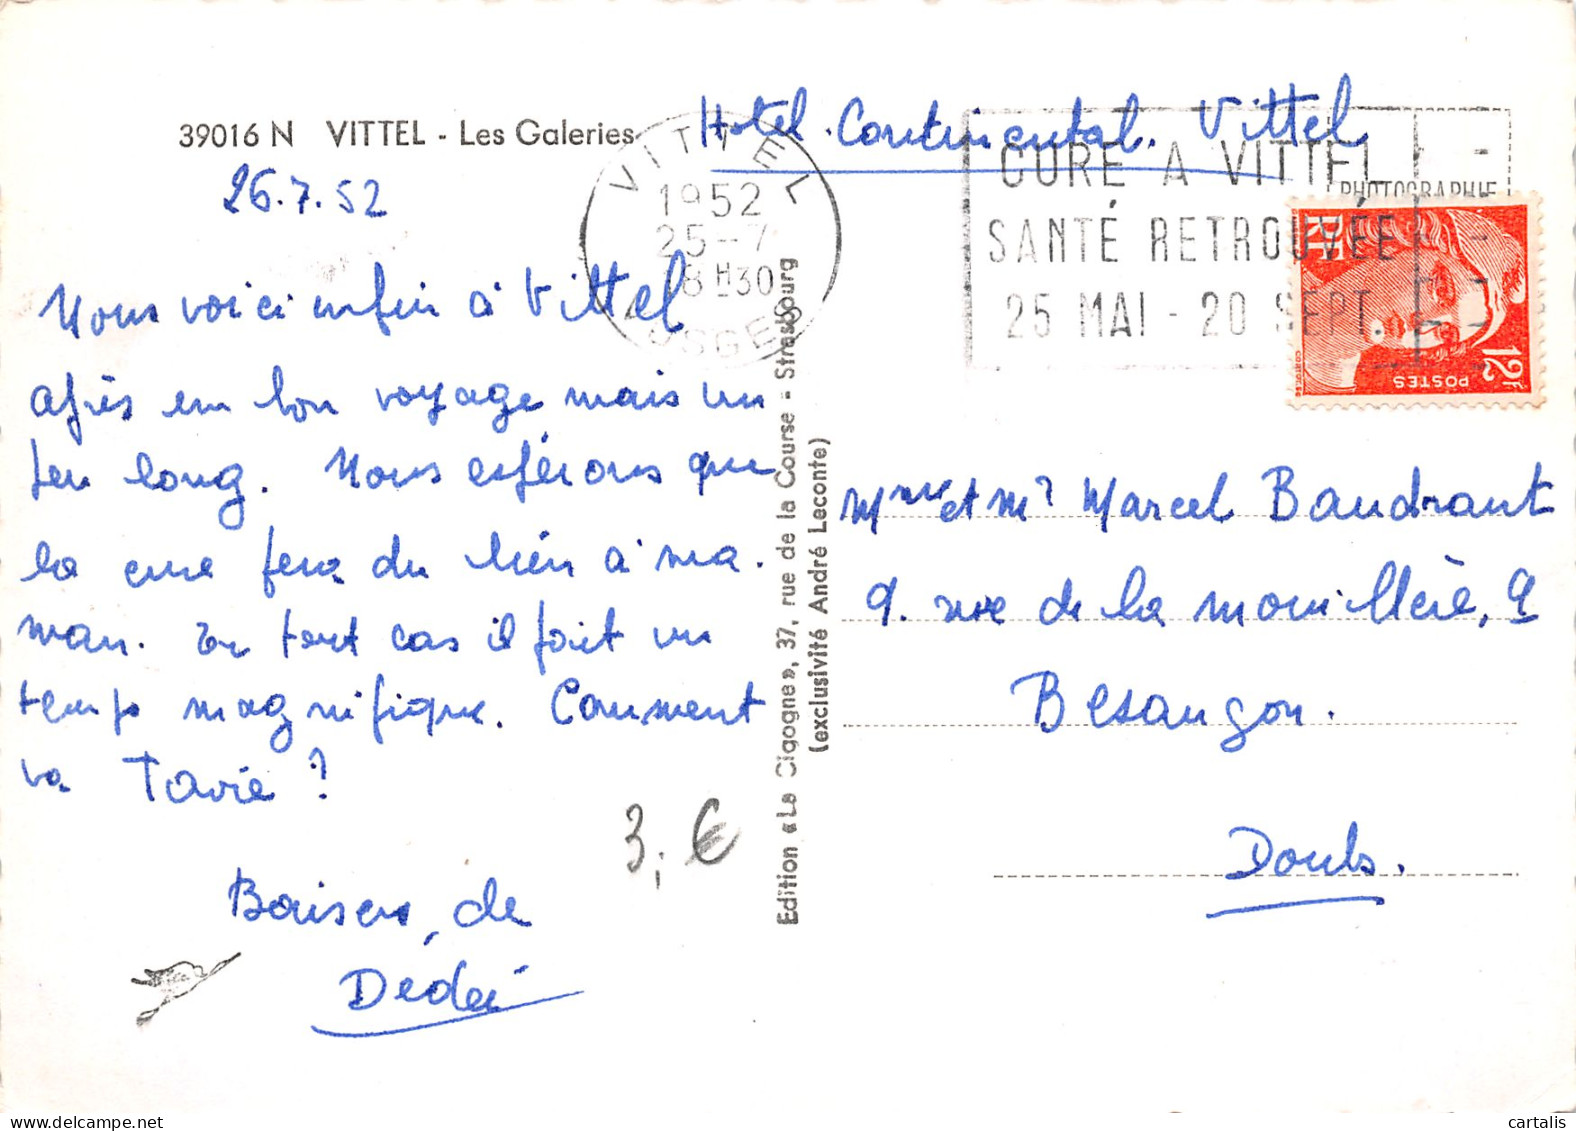 39016 N VITTEL - Les Galeries
26.7.52
Hotel Continental. Vittel
VITTEL
1952
25-7
18H30
VOSGES
CURE A VITTEL
SANTÉ RETROUVÉE
25 MAI - 20 SEPT.
PHOTOGRAPHIE
RF
POSTES
12F
Nous voici enfin à Vittel
après un bon voyage mais un
peu long. Nous espérons que
la cure fera du bien à ma.
man. En tout cas il fait un
temps magnifique. Comment
va Tavie ?
Baisers, de
Dédée
3,€
Edition «La Cigogne», 37, rue de la Course - Strasbourg
(exclusivité André Leconte)
Mme et Mr Marcel Baudrant
9. rue de la mouillère, 9
Besançon.
Doubs.
cartalis